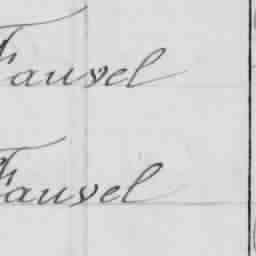 Fauvel
Fauvel